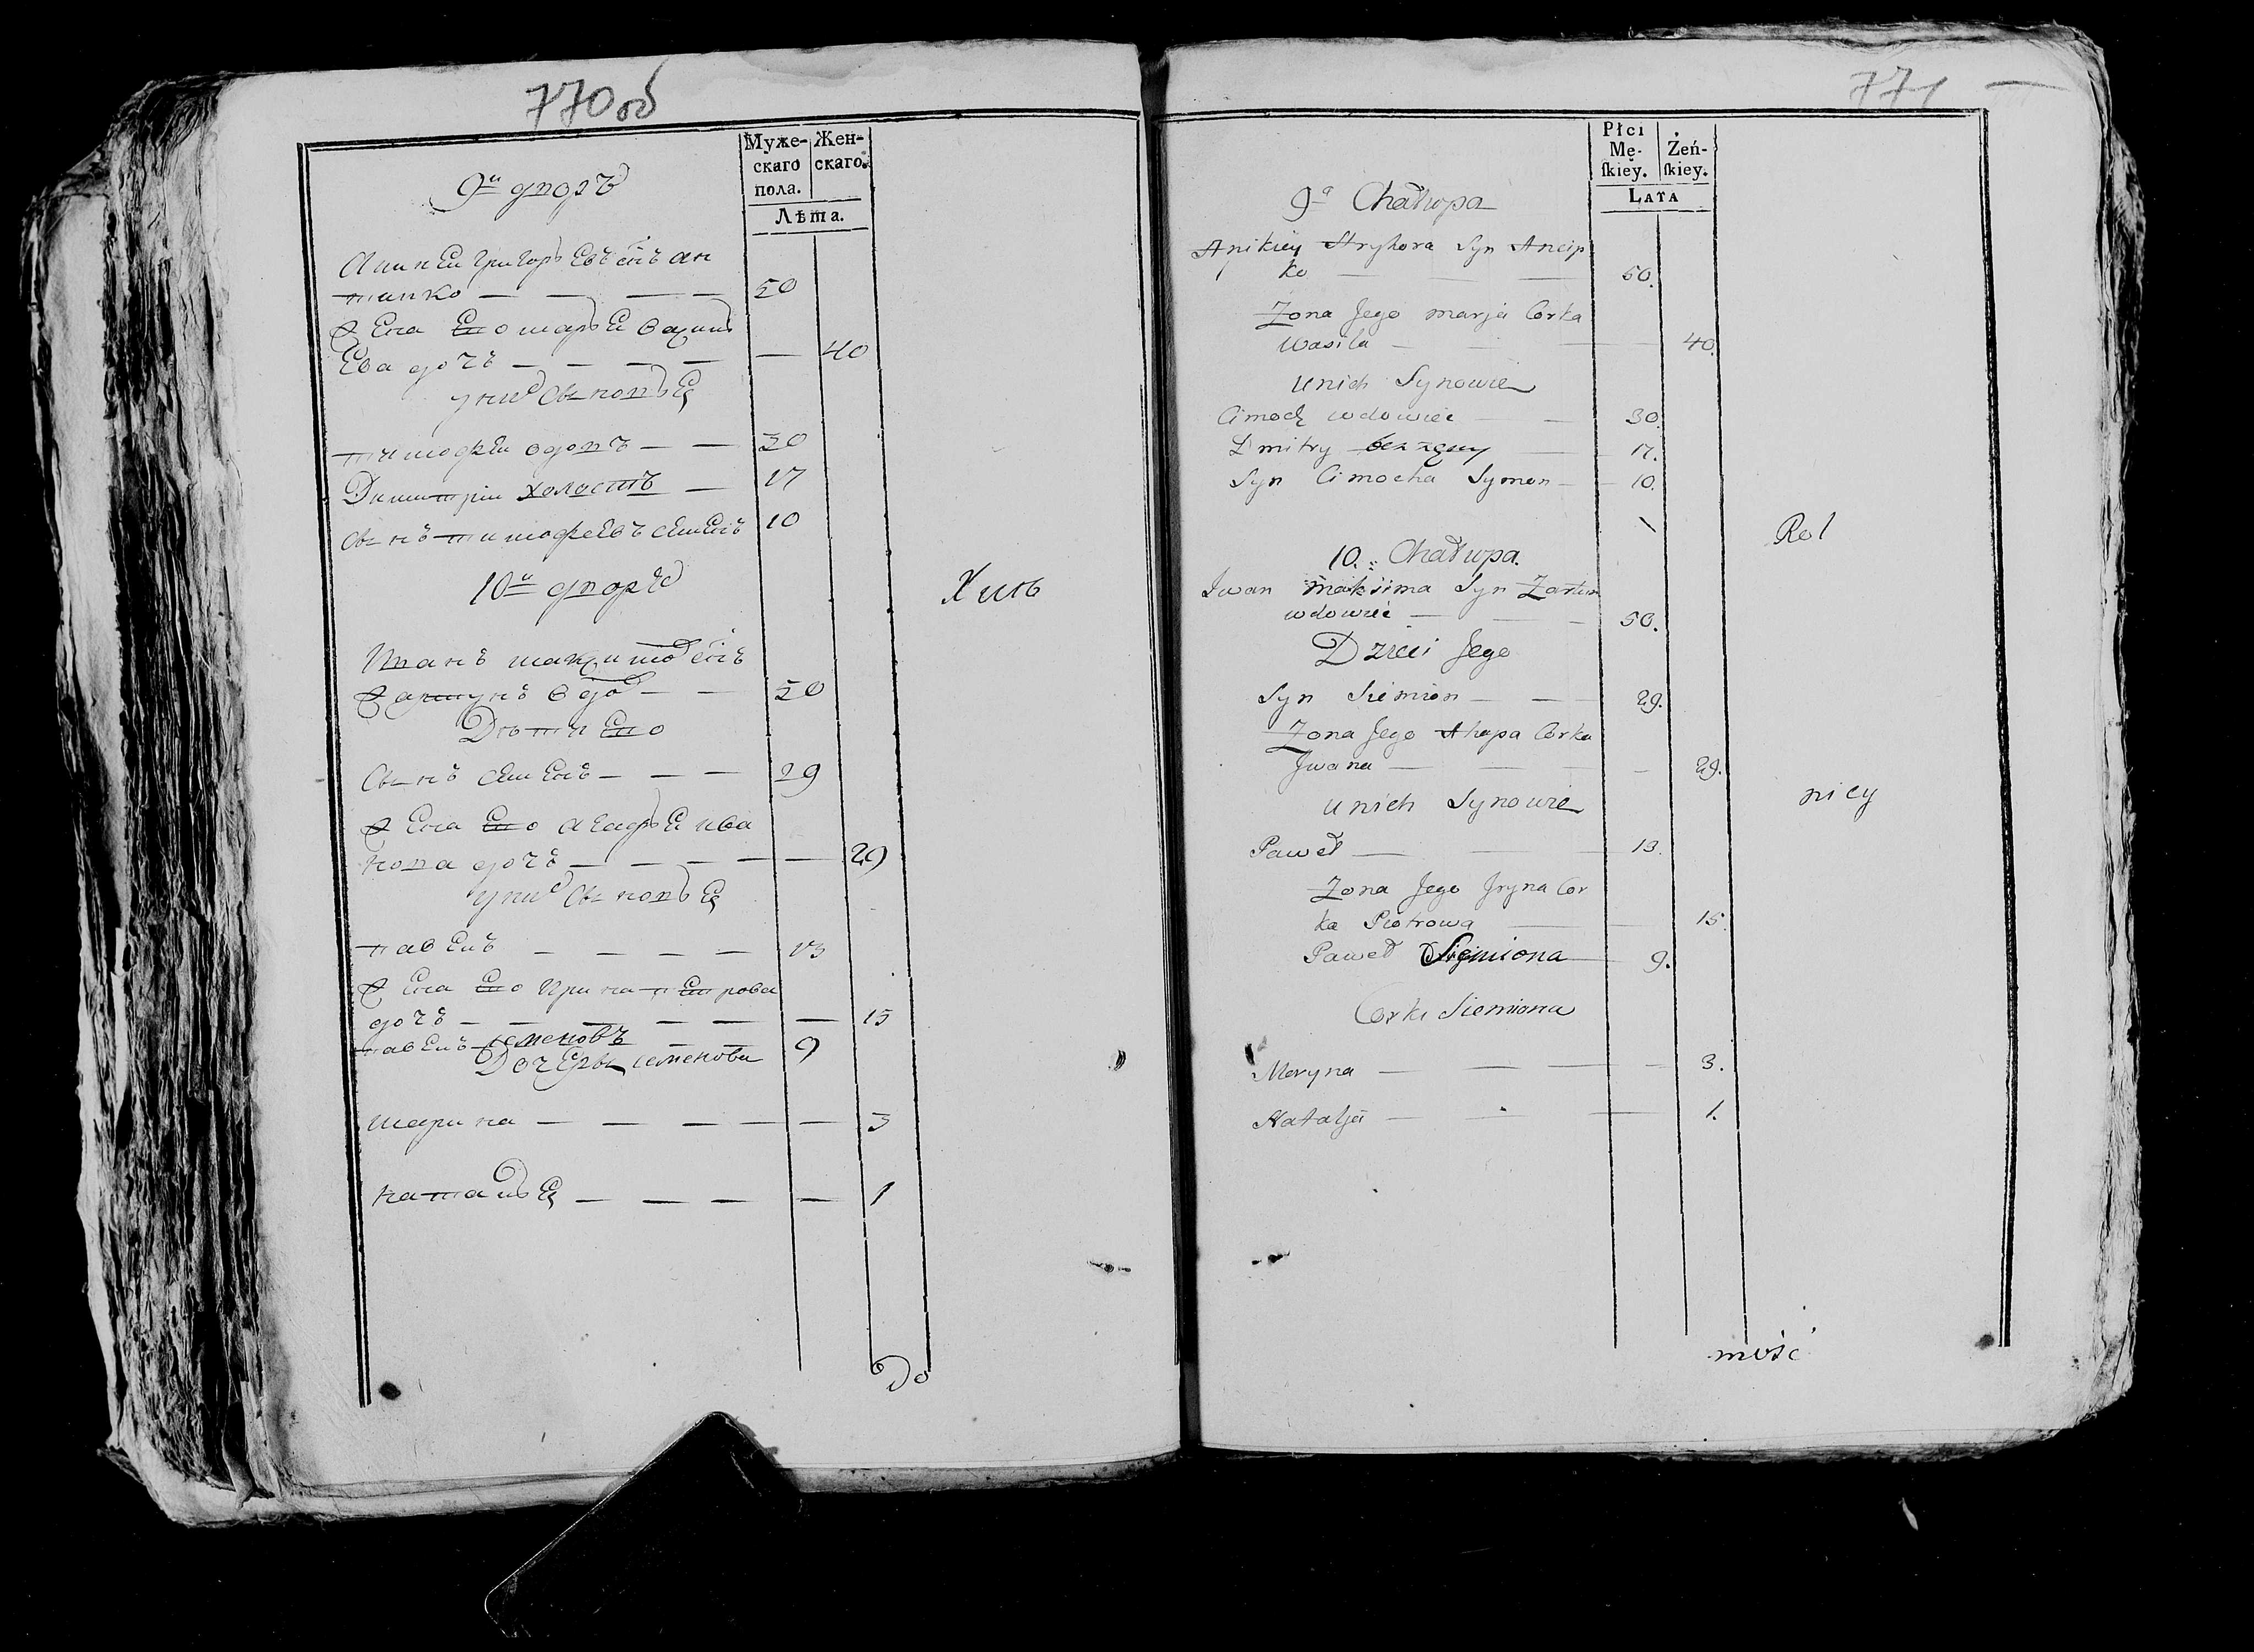 770об
Муже- Жен-
скаго скаго.
пола.
Лѣта.
9й дворъ
Аникей Григорьевъ сынъ Ан
типко — — — — 50
Жена Его марья василь
Ева дочь — — — — — 40
у них сыновья
тимофей вдовъ — — 30
Димитрій холостъ — 17
сынъ тимофеевъ семенъ 10
10й дворъ
Иванъ максимов сынъ
вдов — — 50
Дѣти Его
Сынъ семенъ — — — 29
Жена Его агафья ива
нова дочь — — — — — 29
у них сыновья
павелъ — — — — 13
Жена Его Ирина петрова
дочь — — — — — — 15
павелъ семеновъ — — 9
Дочеры семенова
марина — — — — — 3
наталья — — — — 1
Хлѣ
До
771
Płci
Mę- Żeń-
ſkiey. ſkiey.
Lata
9a Chałupa
Anikiey Hryhora Syn Ancip
ko — — — 50.
Zona Jego marja Corka
Wasila — — — 40.
unich Synowie
Cimoch wdowiec — — 30.
Dmitry bezżęny — 17.
Syn Cimocha Symon — 10.
10. Chałupa.
Jwan Maksima Syn
wdowiec — — — 50.
Dzieci Jego
Syn Siemion — — — 29.
Zona Jego Ahapa Corka
Jwana — — — — 29.
unich Synowie
Paweł — — 13.
Zona Jego Jryna Cor
ka Piotrowa — — 15.
Paweł Siemiona — 9.
Corki Siemiona
Maryna — — — — 3.
Natalja — — — 1.
Rol
nicy
mość